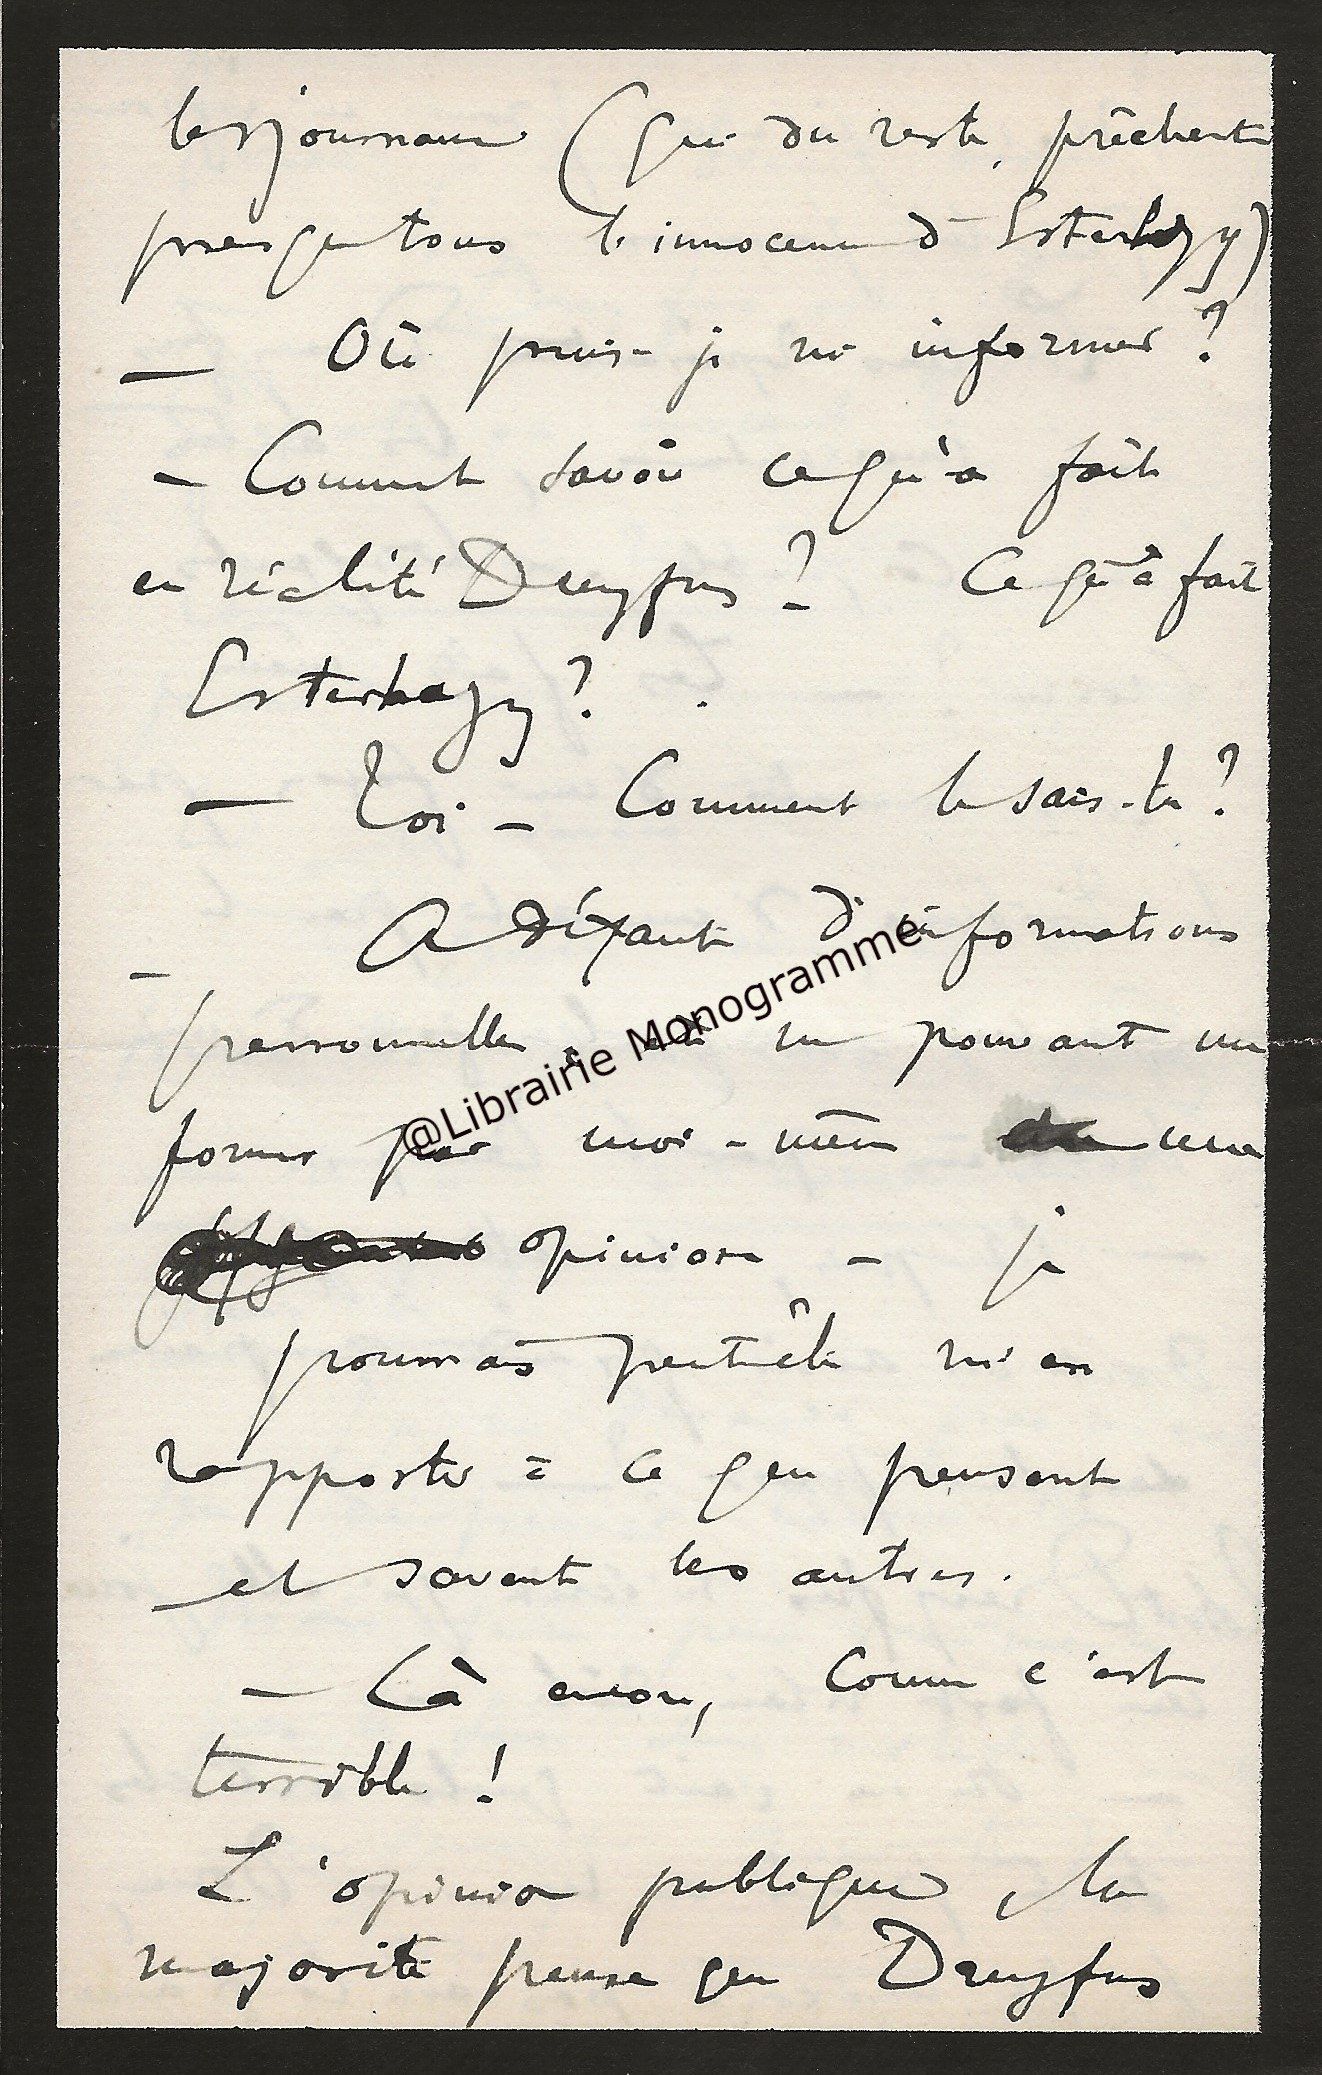 les journaux (qui du reste, prêchent
presque tous l'innocence d'Esterhazy)
— Où puis-je m'informer ?
— Comment savoir ce qu'a fait
en réalité Dreyfus ? Ce qu'a fait
Esterhazy ?
— Toi — Comment le sais-tu ?
— A défaut d'informations
personnelles, et ne pouvant me
former par moi-même une
opinion — je
pourrais peut-être m'en
rapporter à ce que pensent
et savent les autres.
— Là encore, comme c'est
terrible !
L'opinion publique, la
majorité pense que Dreyfus
@Librairie Monogramme